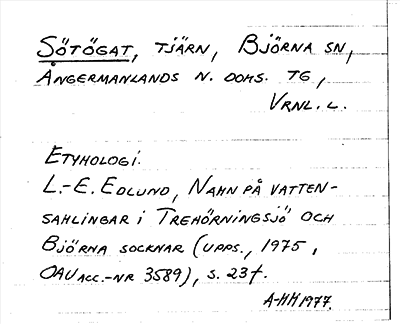 SÖTÖGAT, TJÄRN, BJÖRNA SN,
ÅNGERMANLANDS N. DOMS. TG,
VRNL. L.
ETYMOLOGI:
L.-E. EDLUND, NAMN PÅ VATTEN-
SAMLINGAR I TREHÖRNINGSJÖ OCH
BJÖRNA SOCKNAR (UPPS., 1975,
OAU ACC.-NR 3589), S. 23f.
A-MH 1977.